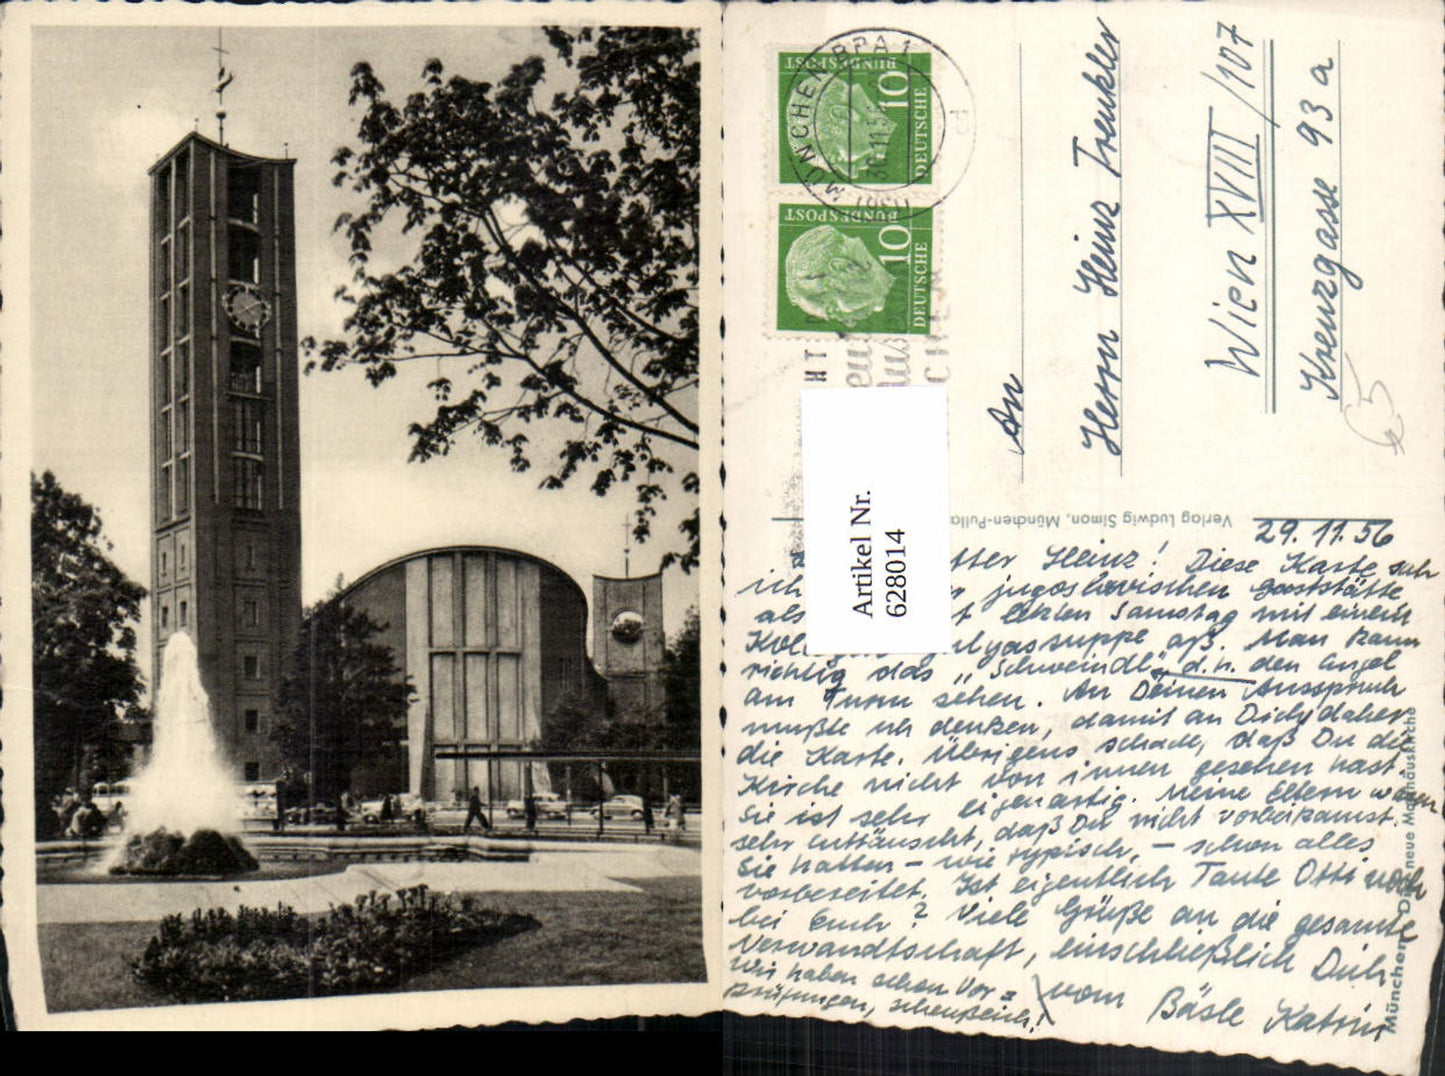 BUNDESPOST
10
DEUTSCHE
MÜNCHEN BPA 1
BUNDESPOST
10
DEUTSCHE
An
Herrn Heinz Trenkler
Wien XVIII/107
Kreuzgasse 93 a
Artikel Nr.
628014
Verlag Ludwig Simon, München-Pulla
München Die neue Matthäuskirche
29. 11. 56
tter Heinz! Diese Karte sah
ich jugoslavischen Gaststätte
als letzten Samstag mit einem
Kol gulyassuppe aß. Man kann
richtig das „Schweindl", d.h. den Engel
am Turm sehen. An Deinen Ausspruch
mußte ich denken, damit an Dich, daher
die Karte. Übrigens schade, daß Du die
Kirche nicht von innen gesehen hast.
Sie ist sehr eigenartig. Meine Eltern waren
sehr enttäuscht, daß Du nicht vorbeikamst.
Sie hatten – wie typisch, – schon alles
vorbereitet. Ist eigentlich Tante Otti noch
bei Euch? Viele Grüße an die gesamte
Verwandtschaft, einschließlich Dich
vom Bäsle Katrin
Wir haben schon Vor=
prüfungen, scheußlich!